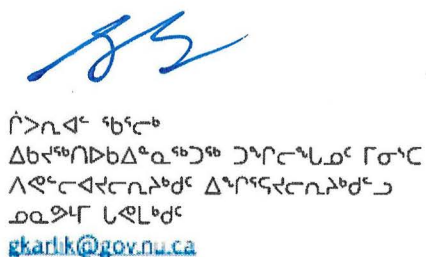 ᒌᐳᕆᐊᑦ ᖃᕐᓕᒃ
ᐃᑲᔪᖅᑎᐅᑲᐃᓐᓇᖅᑐᖅ ᑐᖏᓕᖓᓄᑦ ᒥᓂᔅᑕ
ᐱᕙᓪᓕᐊᔪᓕᕆᔨᒃᑯᑦ ᐃᖏᕐᕋᔪᓕᕆᔨᒃᑯᓪᓗ
ᓄᓇᕗᒻᒥ ᒐᕙᒪᒃᑯᑦ
gkarlik@gov.nu.ca